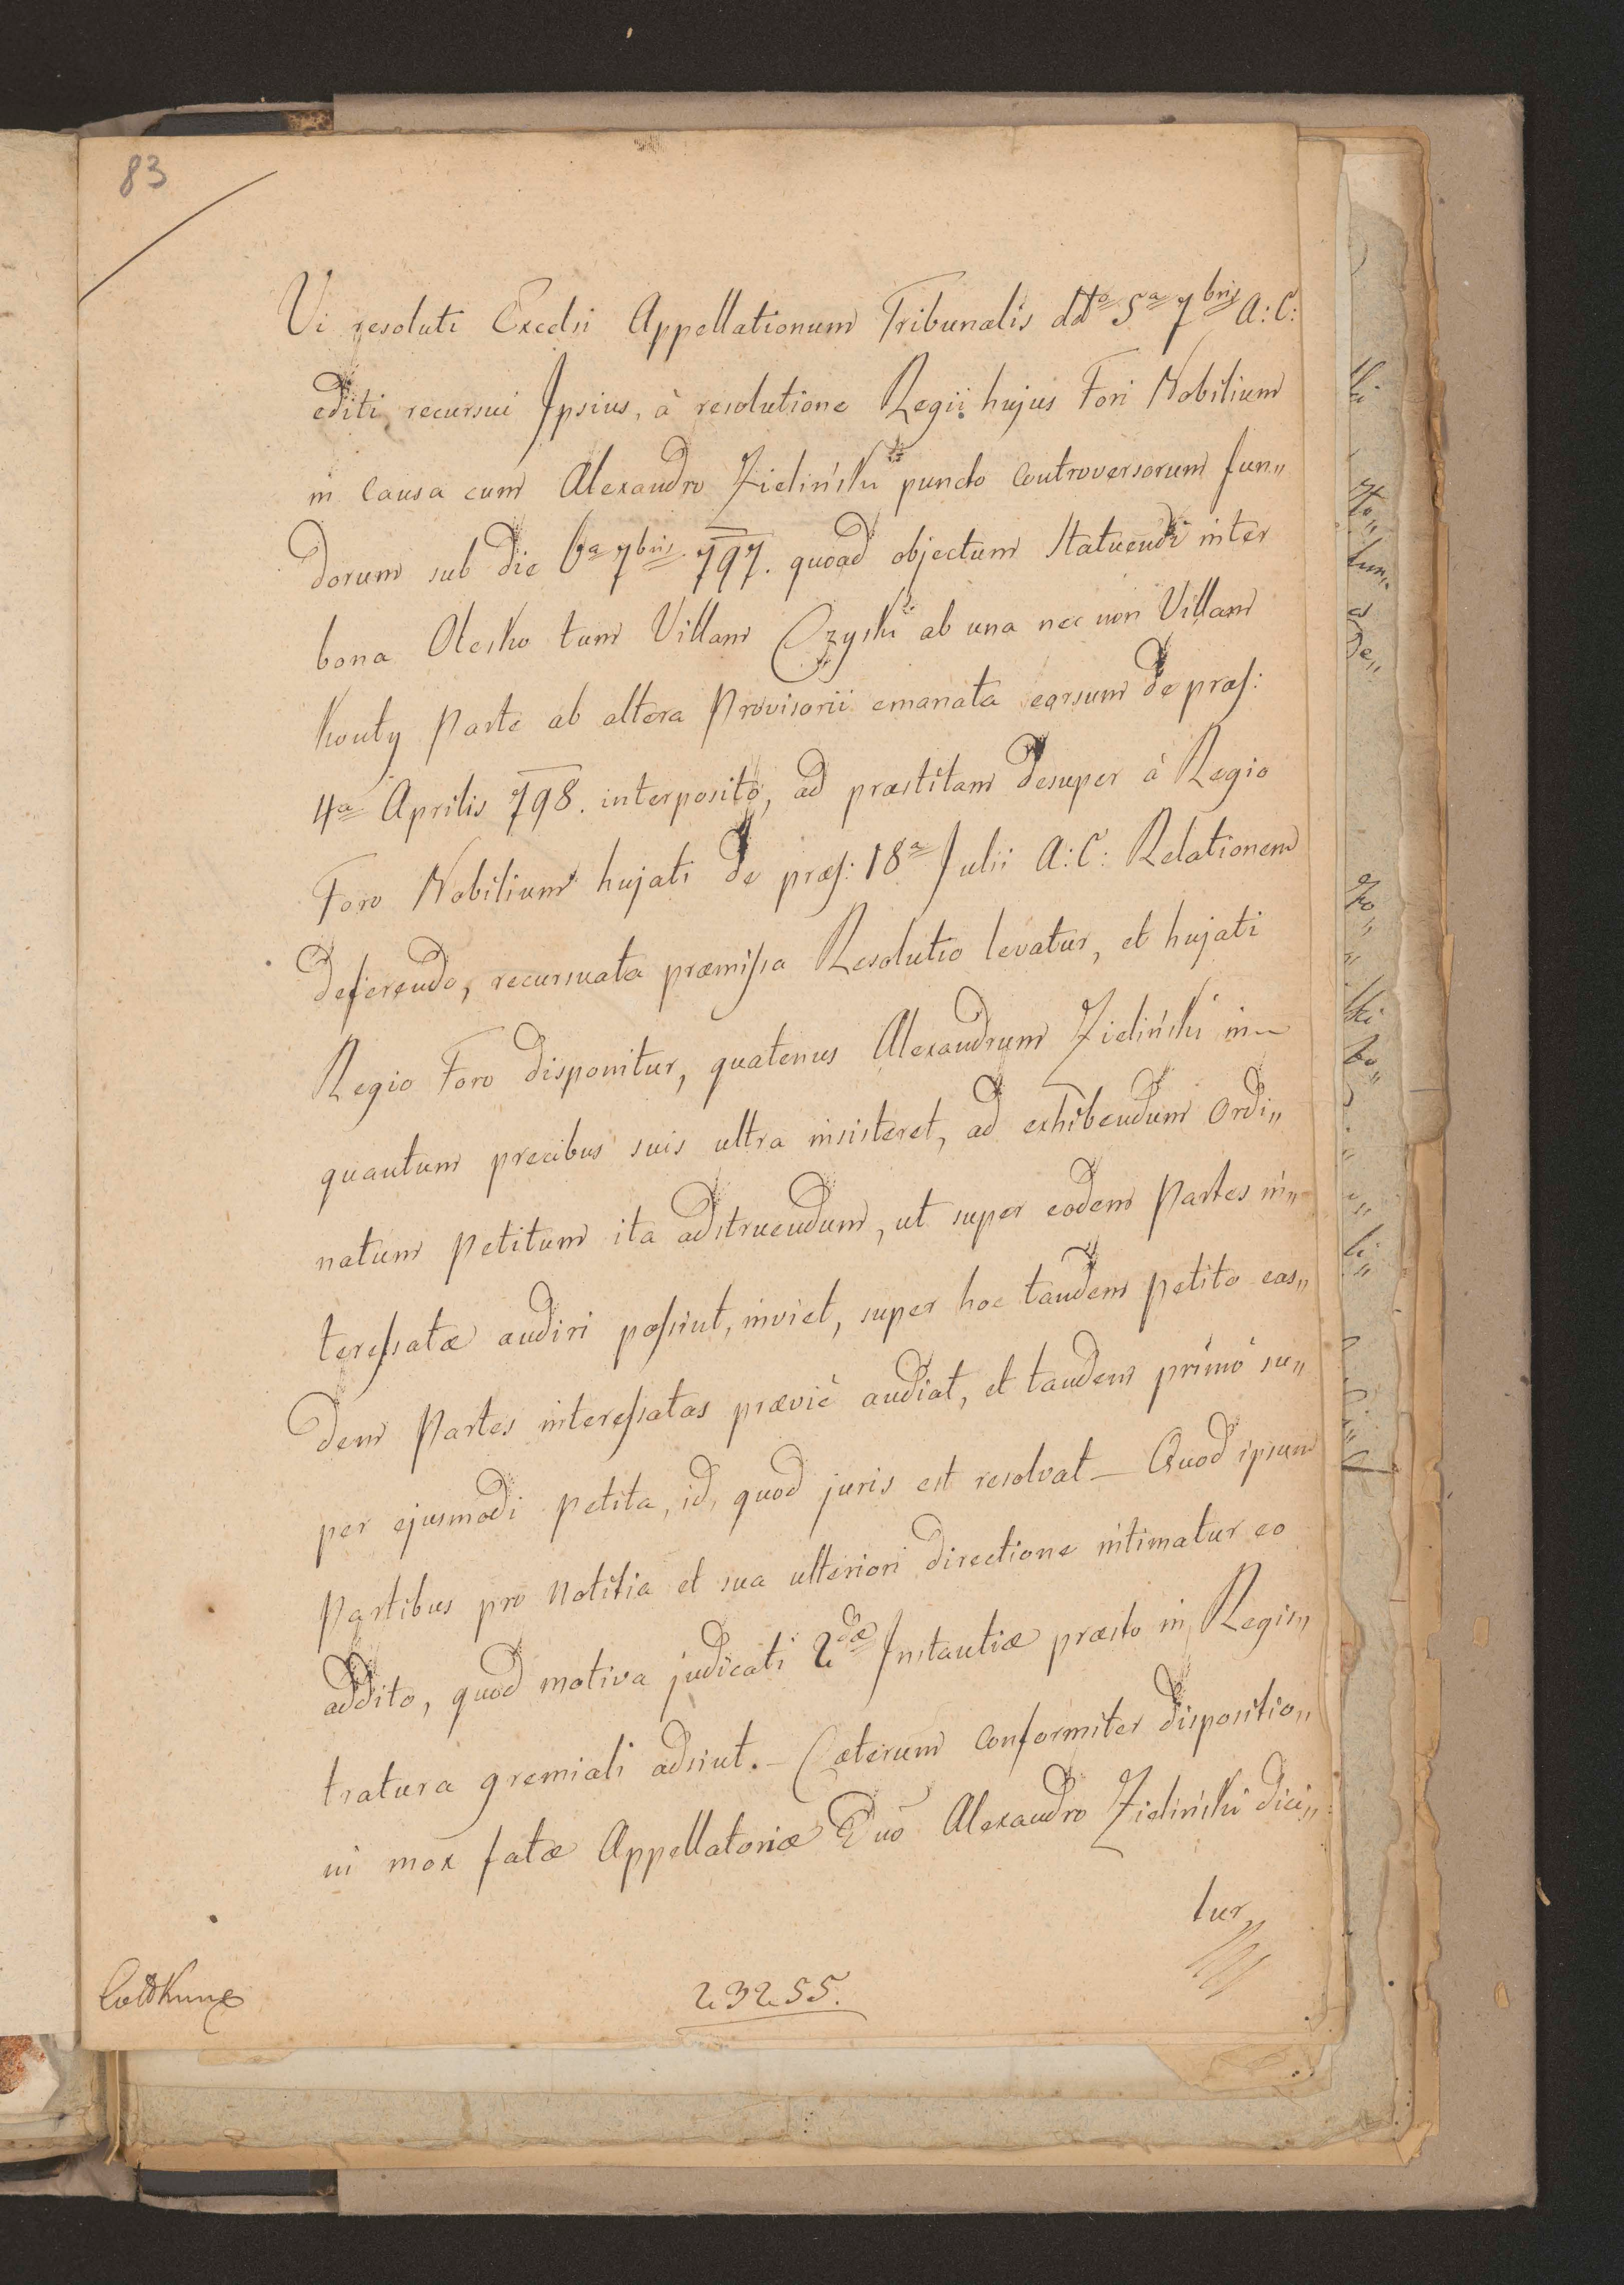 83
Vi resoluti Excelsi Appellationum Tribunalis ddto 5a 7bris A: C:
editi, recursui Ipsius, à resolutione Regii hujus Fori Nobilium
in Causa cum Alexandro Zieliński puncto Controversorum fun„
dorum sub die 6a 7bris 797. quoad objectum Statuendi inter
bona Olesko tum Villam Czyski ab una nec non Villam
Kouty Parte ab altera Provisorii emanata earsum de præs:
4a Aprilis 798. interposito, ad præstitam desuper à Regio
Foro Nobilium hujati de præs: 18a Julii A: C: Relationem
deferendo, recursuata præmissa Resolutio levatur, et hujati
Regio Foro disponitur, quatenus Alexandrum Zieliński in–
quantum precibus suis ultra insisteret, ad exhibendum Ordi„
natum Petitum ita adstruendum, ut super eodem Partes in„
teressatæ audiri possint, inviet, super hoc tandem petito eas„
dem Partes interessatas prævie audiat, et tandem primò su„
per ejusmodi petita, id, quod juris est resolvat – Quod ipsum
Partibus pro Notitia et sua ulteriori directione intimatur eo
addito, quod motiva judicati 2dæ Instantiæ præsto in Regis„
tratura gremiali adsint. – Cæterum Conformiter dispositio„
ni mox fatæ Appellatoriæ Dno Alexandro Zieliński dici„
tur
23255.